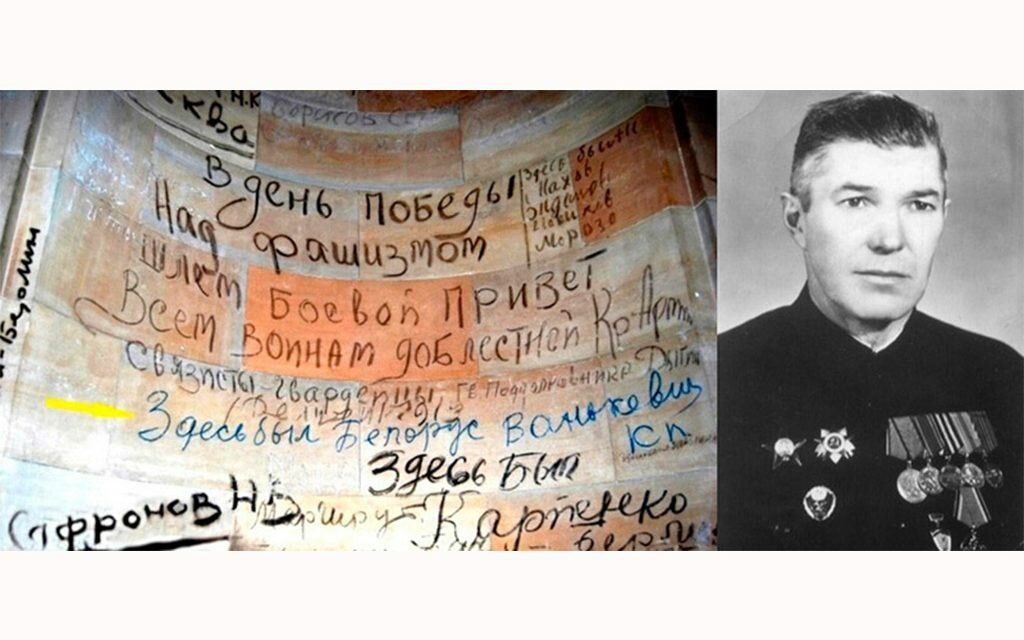 Н.К
сква
Борисов
В день Победы
Над фашизмом
Шлём Боевой Привет
Всем воинам доблестной Кр Арм
Здесь были
Пахов
Морозо
Связисты гвардейцы, Гв. Подполковника
Здесь был Белорус Ванькевич
КП
Здесь Был
Сафронов Н В
Маршрут
Карпенко
Берли